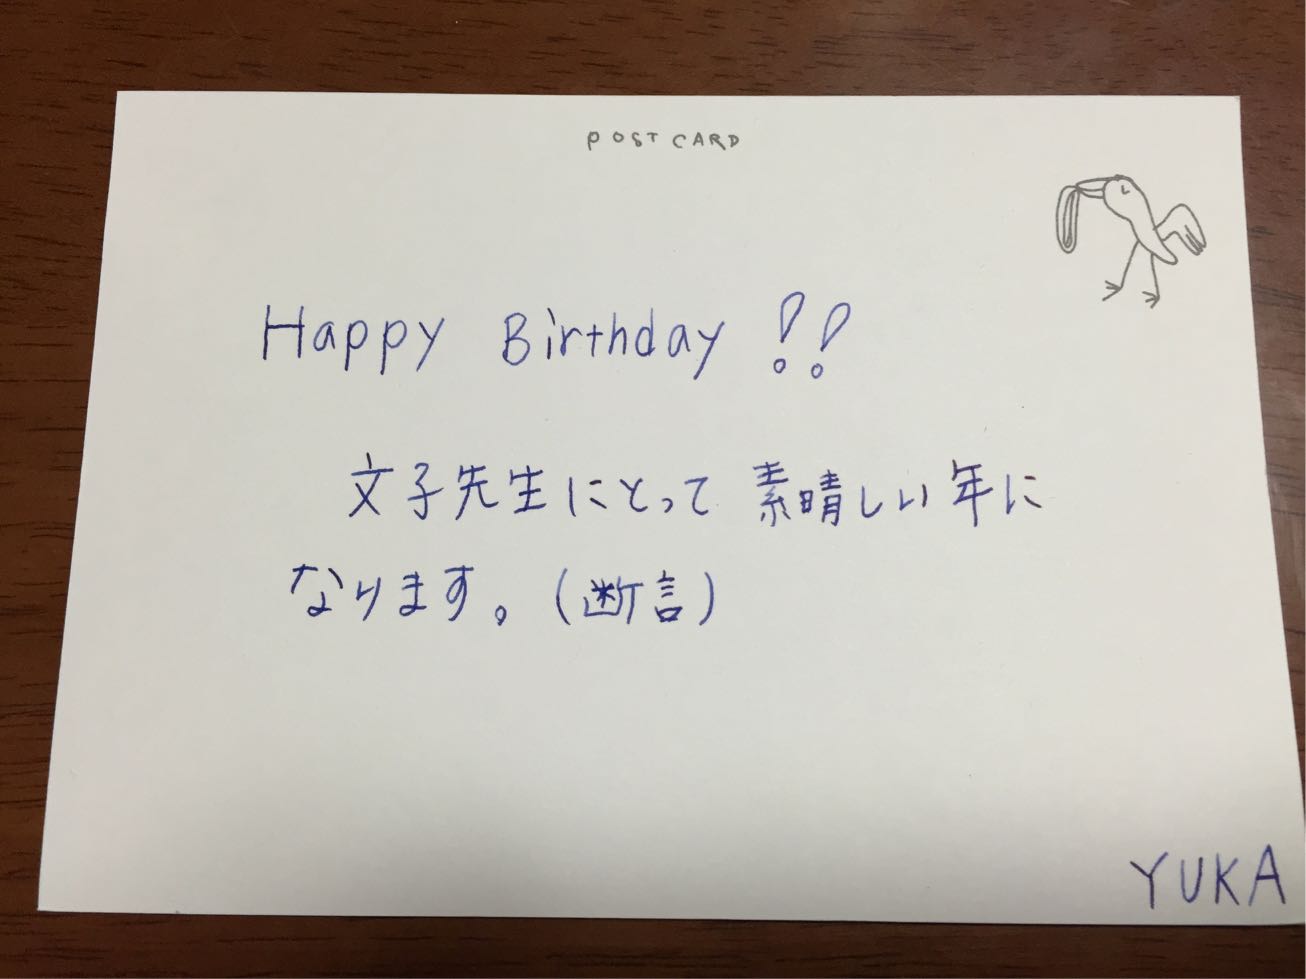 POST CARD
Happy Birthday !!
文子先生にとって 素晴しい年に
なります。(断言)
YUKA